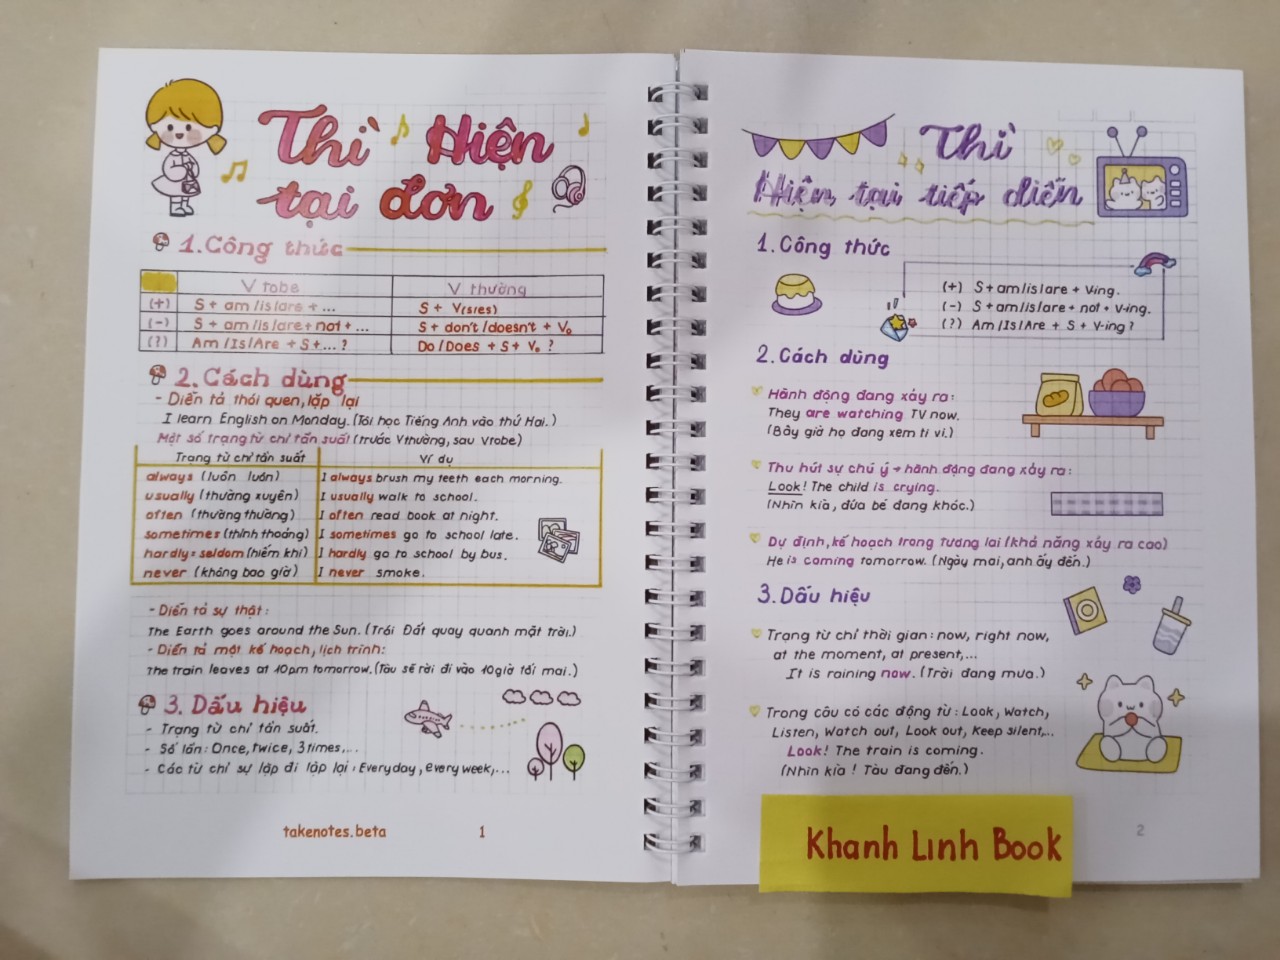 Thì Hiện
tại đơn
1. Công thức
V tobe V thường
(+) S + am/is/are + ... S + V(s/es)
(-) S + am/is/are + not + ... S + don't/doesn't + V₀
(?) Am/Is/Are + S + ... ? Do/Does + S + V₀ ?
2. Cách dùng
- Diễn tả thói quen, lặp lại
I learn English on Monday. (Tôi học Tiếng Anh vào thứ Hai.)
Một số trạng từ chỉ tần suất (trước Vthường, sau Vtobe)
Trạng từ chỉ tần suất Ví dụ
always (luôn luôn) I always brush my teeth each morning.
usually (thường xuyên) I usually walk to school.
often (thường thường) I often read book at night.
sometimes (thỉnh thoảng) I sometimes go to school late.
hardly = seldom (hiếm khi) I hardly go to school by bus.
never (không bao giờ) I never smoke.
- Diễn tả sự thật:
The Earth goes around the Sun. (Trái Đất quay quanh mặt trời.)
- Diễn tả một kế hoạch, lịch trình:
The train leaves at 10pm tomorrow. (Tàu sẽ rời đi vào 10giờ tối mai.)
3. Dấu hiệu
- Trạng từ chỉ tần suất.
- Số lần: Once, twice, 3 times,...
- Các từ chỉ sự lặp đi lặp lại: Everyday, every week,...
takenotes.beta 1
Thì
Hiện tại tiếp diễn
1. Công thức
(+) S + am/is/are + Ving.
(-) S + am/is/are + not + V-ing.
(?) Am/Is/Are + S + V-ing?
2. Cách dùng
Hành động đang xảy ra:
They are watching TV now.
(Bây giờ họ đang xem ti vi.)
Thu hút sự chú ý → hành động đang xảy ra:
Look! The child is crying.
(Nhìn kìa, đứa bé đang khóc.)
Dự định, kế hoạch trong tương lai (khả năng xảy ra cao)
He is coming tomorrow. (Ngày mai, anh ấy đến.)
3. Dấu hiệu
Trạng từ chỉ thời gian: now, right now,
at the moment, at present,...
It is raining now. (Trời đang mưa.)
Trong câu có các động từ: Look, Watch,
Listen, Watch out, Look out, Keep silent,...
Look! The train is coming.
(Nhìn kìa! Tàu đang đến.)
2
Khanh Linh Book